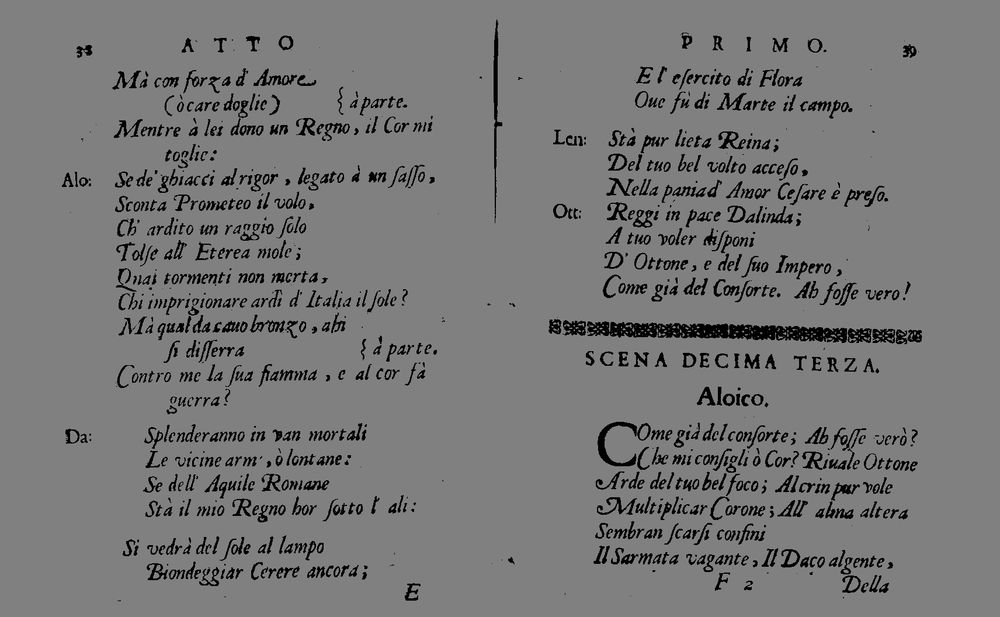 38 ATTO
Mà con forza d' Amore
(ò care doglie) { à parte.
Mentre à lei dono un Regno, il Cor mi
toglie:
Alo: Se de' ghiacci al rigor, legato à un ſaſſo,
Sconta Prometeo il volo,
Ch' ardito un raggio ſolo
Tolſe all' Eterea mole;
Quai tormenti non merta,
Chi imprigionare ardì d' Italia il ſole?
Mà qual da cavo bronzo, ahi
ſi diſſerra { à parte.
Contro me la ſua fiamma, e al cor fà
guerra?
Da: Splenderanno in van mortali
Le vicine arm', ò lontane:
Se dell' Aquile Romane
Stà il mio Regno hor ſotto l' ali:
Si vedrà del ſole al lampo
Biondeggiar Cerere ancora;
E
PRIMO. 39
E l' eſercito di Flora
Oue fù di Marte il campo.
Len: Stà pur lieta Reina;
Del tuo bel volto acceſo,
Nella pania d' Amor Ceſare è preſo.
Ott: Reggi in pace Dalinda;
A tuo voler diſponi
D' Ottone, e del ſuo Impero,
Come già del Conſorte. Ah foſſe vero!
SCENA DECIMA TERZA.
Aloico.
COme già del conſorte; Ah foſſe verò?
Che mi conſigli ò Cor? Riuale Ottone
Arde del tuo bel foco; Al crin pur vole
Multiplicar Corone; All' alma altera
Sembran ſcarſi confini
Il Sarmata vagante, Il Daco algente,
F 2 Della